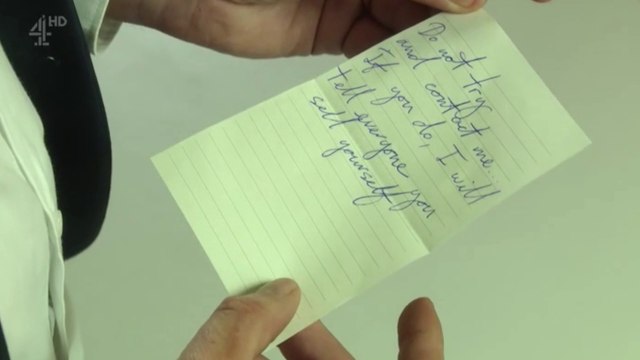 4HD
Do not try
and contact me...
If you do, I will
tell everyone you
sell yourself